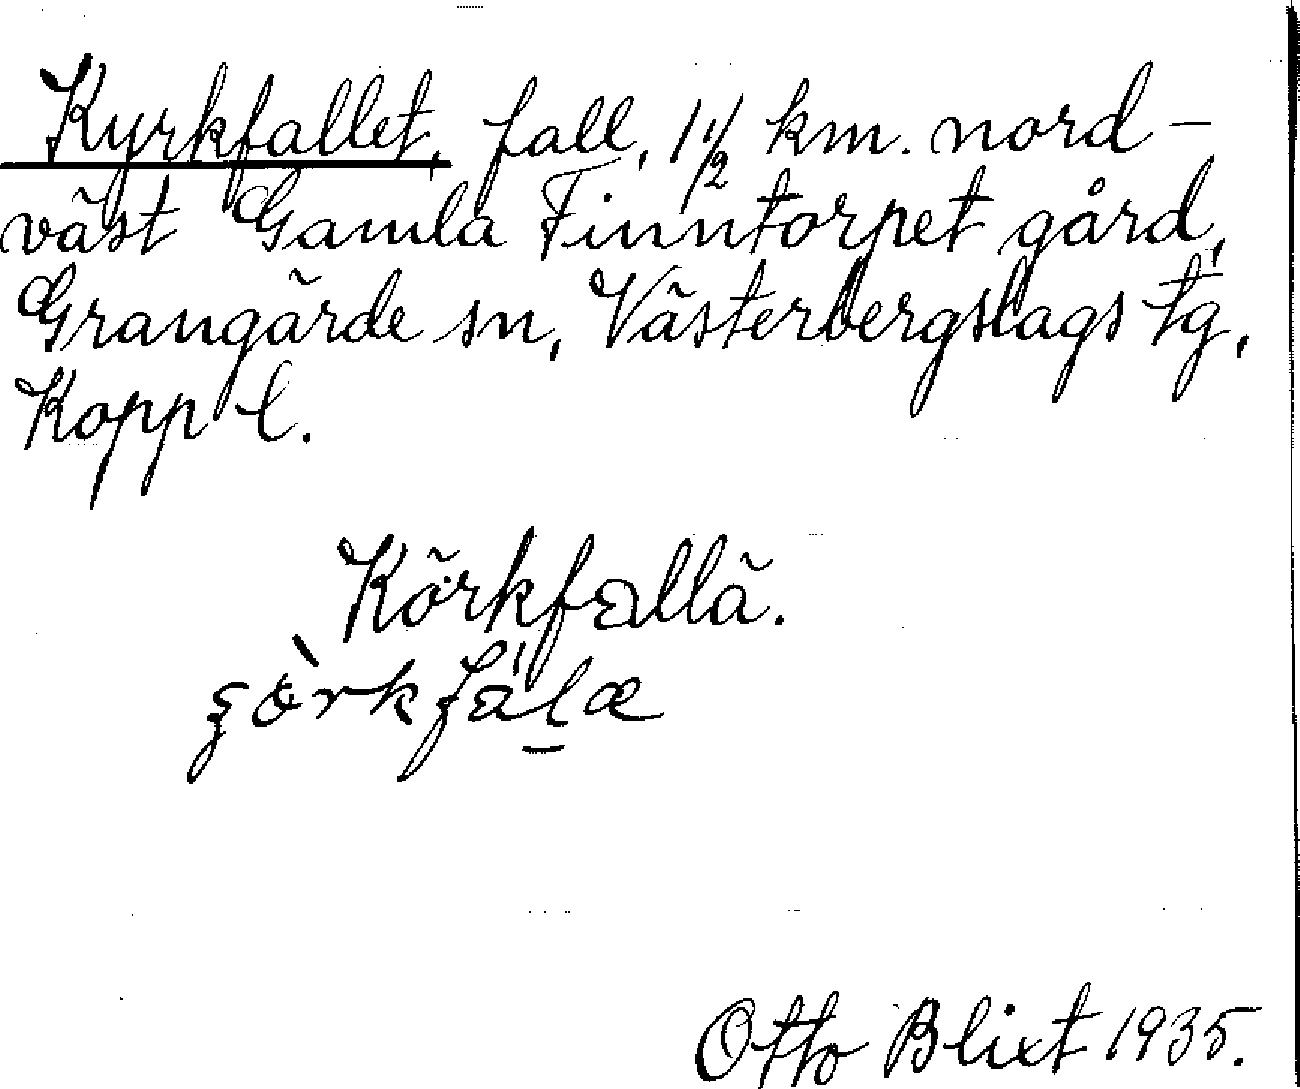 Kyrkfallet, fall, 1 1/2 km. nord-
väst Gamla Finntorpet gård,
Grangärde sn, Västerbergslags tg,
Kopp l.
Körkfallä.
Otto Blixt 1935.